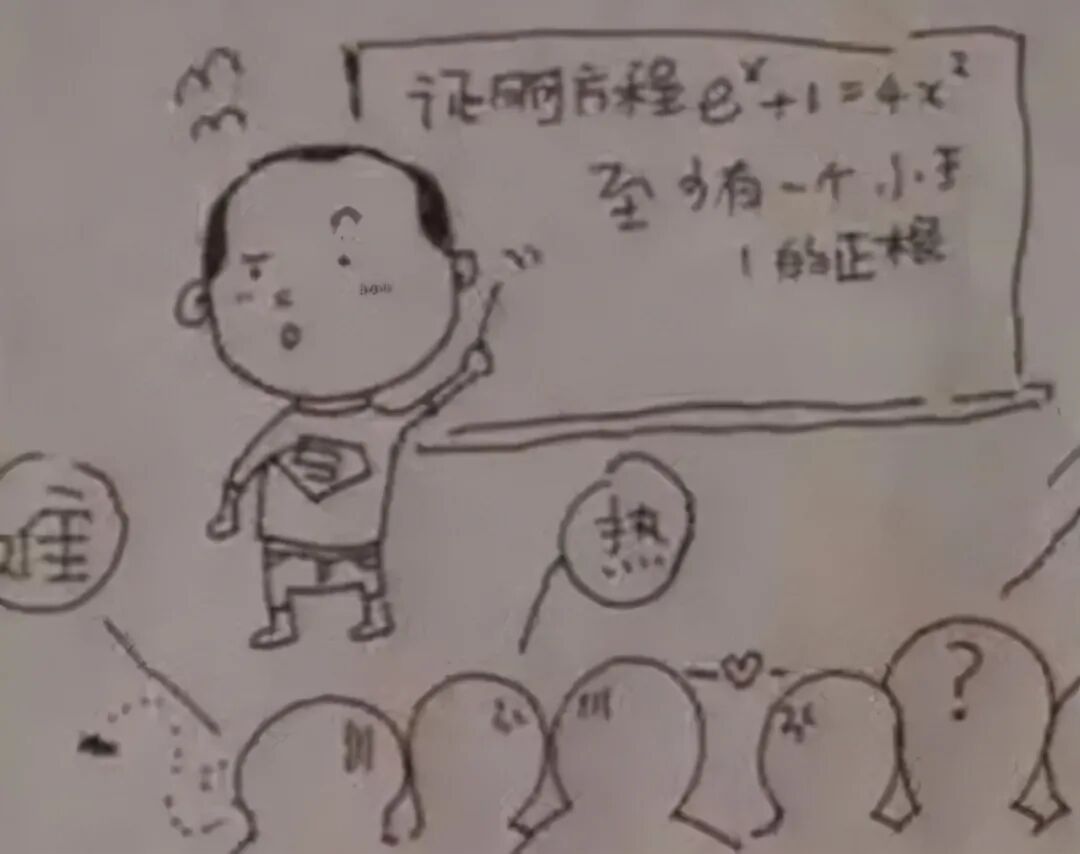 证明方程e^x+1=4x²
至少有一个小于
1的正根
S
难
热
?